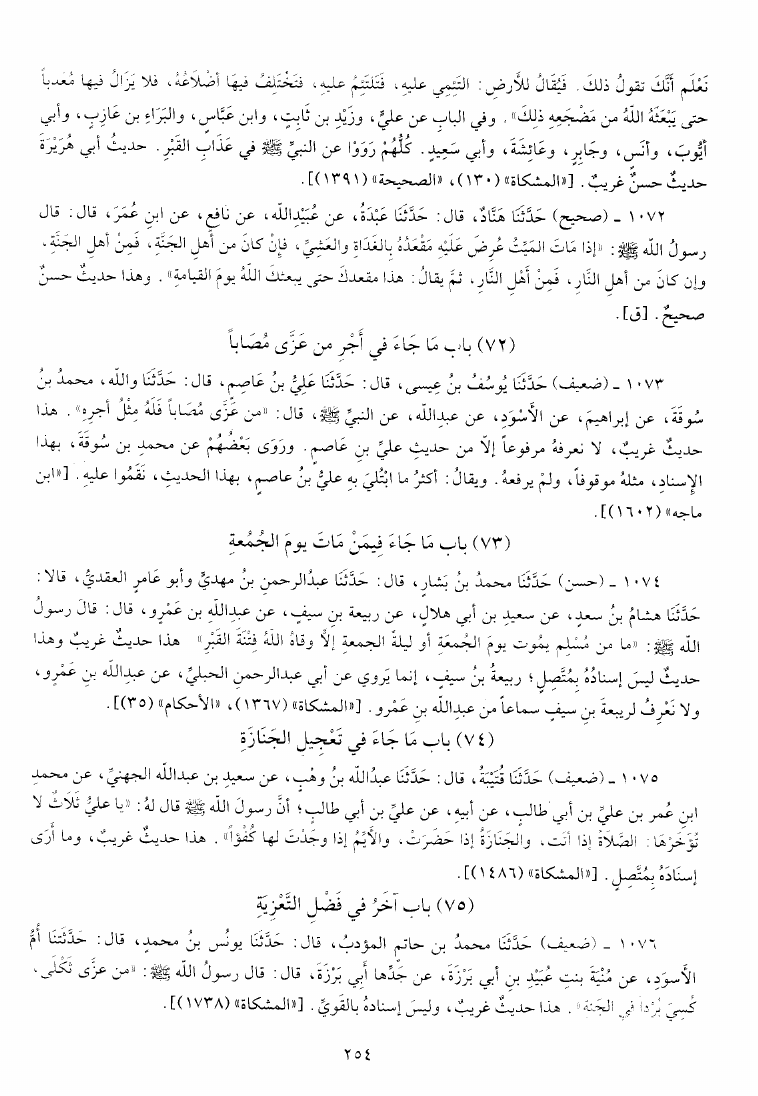 نَعْلَم أَنَّكَ تقولُ ذلكَ. فَيُقَالُ للأرضِ: التَئِمِي عليهِ، فَتَلتَئِمُ عليهِ، فَتَخْتَلِفُ فيهَا أضْلَاعُهُ، فلا يَزَالُ فيها مُعَذباً
حتى يَبْعَثَهُ اللهُ من مَضْجَعِهِ ذلِكَ». وفي البابِ عن عليٍّ، وزَيْدِ بن ثَابِتٍ، وابن عَبَّاسٍ، والبَرَاءِ بنِ عَازِبٍ، وأبي
أيُّوبَ، وأنَسٍ، وجَابِرٍ، وعَائِشَةَ، وأبي سَعِيدٍ. كُلُّهُمْ رَوَوْا عن النبيِّ ﷺ في عَذَابِ القَبْرِ. حديثُ أبي هُرَيْرَةَ
حديثٌ حسنٌ غريبٌ. [«المشكاة» (١٣٠)، «الصحيحة» (١٣٩١)].
١٠٧٢ ـ (صحيح) حَدَّثَنَا هَنَّادٌ، قال: حَدَّثَنَا عَبْدَةُ، عن عُبَيْدِالله، عن نافِعٍ، عن ابنِ عُمَرَ، قال: قال
رسولُ الله ﷺ: «إذا مَاتَ المَيِّتُ عُرِضَ عَلَيْهِ مَقْعَدُهُ بِالغَدَاةِ والعَشِيِّ، فَإنْ كانَ من أهلِ الجَنَّةِ، فَمِنْ أهلِ الجَنَّةِ،
وإن كانَ من أهلِ النَّارِ، فَمِنْ أَهْلِ النَّارِ، ثمَّ يقالُ: هذا مقعدكَ حتى يبعثكَ اللهُ يومَ القيامةِ». وهذا حديثٌ حسنٌ
صحيحٌ. [ق].
(٧٢) باب مَا جَاءَ في أَجْرِ من عَزَّى مُصَاباً
١٠٧٣ ـ (ضعيف) حَدَّثَنَا يُوسُفُ بنُ عِيسى، قال: حَدَّثَنَا عَلِيُّ بنُ عَاصِمٍ، قال: حَدَّثَنَا والله، محمدُ بنُ
سُوقَةَ، عن إبراهيمَ، عن الأَسْوَدِ، عن عبدِالله، عن النبيِّ ﷺ، قال: «من عَزَّى مُصَاباً فَلَهُ مِثْلُ أجرِهِ». هذا
حديثٌ غريبٌ، لا نعرفهُ مرفوعاً إلاَّ من حديثِ عليِّ بنِ عَاصمٍ. ورَوَى بَعْضُهُمْ عن محمدِ بنِ سُوقَةَ، بهذا
الإسنادِ، مثلهُ موقوفاً، ولمْ يرفعهُ. ويقالُ: أكثرُ ما ابْتُلِيَ بهِ عليُّ بنُ عاصمٍ، بهذا الحديثِ، نَقَمُوا عليهِ. [«ابن
ماجه» (١٦٠٢)].
(٧٣) باب مَا جَاءَ فِيمَنْ مَاتَ يومَ الجُمُعةِ
١٠٧٤ ـ (حسن) حَدَّثَنَا محمدُ بنُ بَشارٍ، قال: حَدَّثَنَا عبدُالرحمنِ بنُ مهديٍّ وأبو عَامرٍ العقديُّ، قالا:
حَدَّثَنَا هشامُ بنُ سعدٍ، عن سعيدِ بن أبي هلالٍ، عن ربيعة بنِ سيفٍ، عن عبدِاللهِ بن عَمْرٍو، قال: قالَ رسولُ
الله ﷺ: «ما من مُسْلِمٍ يمُوت يومَ الجُمعَةِ أو ليلةَ الجمعةِ إلاَّ وقاهُ اللهُ فِتْنَةَ القَبْرِ» هذا حديثٌ غريبٌ وهذا
حديثٌ ليسَ إسنادُهُ بِمُتَّصِلٍ؛ ربيعةُ بنُ سيفٍ، إنما يَروي عن أبي عبدالرحمنِ الحبليِّ، عن عبدِالله بنِ عَمْرٍو،
ولا نَعْرِفُ لربيعةَ بنِ سيفٍ سماعاً من عبدِالله بنِ عَمْرو. [«المشكاة» (١٣٦٧)، «الأحكام» (٣٥)].
(٧٤) باب مَا جَاءَ في تَعْجِيلِ الجَنَازَةِ
١٠٧٥ ـ (ضعيف) حَدَّثَنَا قُتَيْبَةُ، قال: حَدَّثَنَا عبدُالله بنُ وهْبٍ، عن سعيدِ بن عبدالله الجهنيِّ، عن محمدِ
ابنِ عُمر بن عليِّ بن أبي طالبٍ، عن أبيهِ، عن عليِّ بن أبي طالبٍ؛ أنَّ رسولَ الله ﷺ قال لهُ: «يا عليُّ ثَلَاثٌ لا
تُؤَخِّرْهَا: الصَّلَاةُ إذا أتَت، والجَنَازَةُ إذا حَضَرَتْ، والأيِّمُ إذا وجَدْتَ لها كُفْؤاً». هذا حديثٌ غريبٌ، وما أرَى
إسنَادَهُ بِمُتَّصِلٍ. [«المشكاة» (١٤٨٦)].
(٧٥) باب آخَرُ في فَضْلِ التَّعْزِيَةِ
١٠٧٦ ـ (ضعيف) حَدَّثَنَا محمدُ بن حاتمٍ المؤدبُ، قال: حَدَّثَنَا يونُس بنُ محمدٍ، قال: حَدَّثَتنَا أمُّ
الأسوَدِ، عن مُنْيَةَ بنتِ عُبَيْدِ بنِ أبي بَرْزَةَ، عن جَدِّها أبِي بَرْزَةَ، قال: قال رسولُ الله ﷺ: «من عزَّى ثَكْلَى،
كُسِيَ بُرْداً في الجَنة». هذا حديثٌ غريبٌ، وليسَ إسنادهُ بالقَويِّ. [«المشكاة» (١٧٣٨)].
٢٥٤